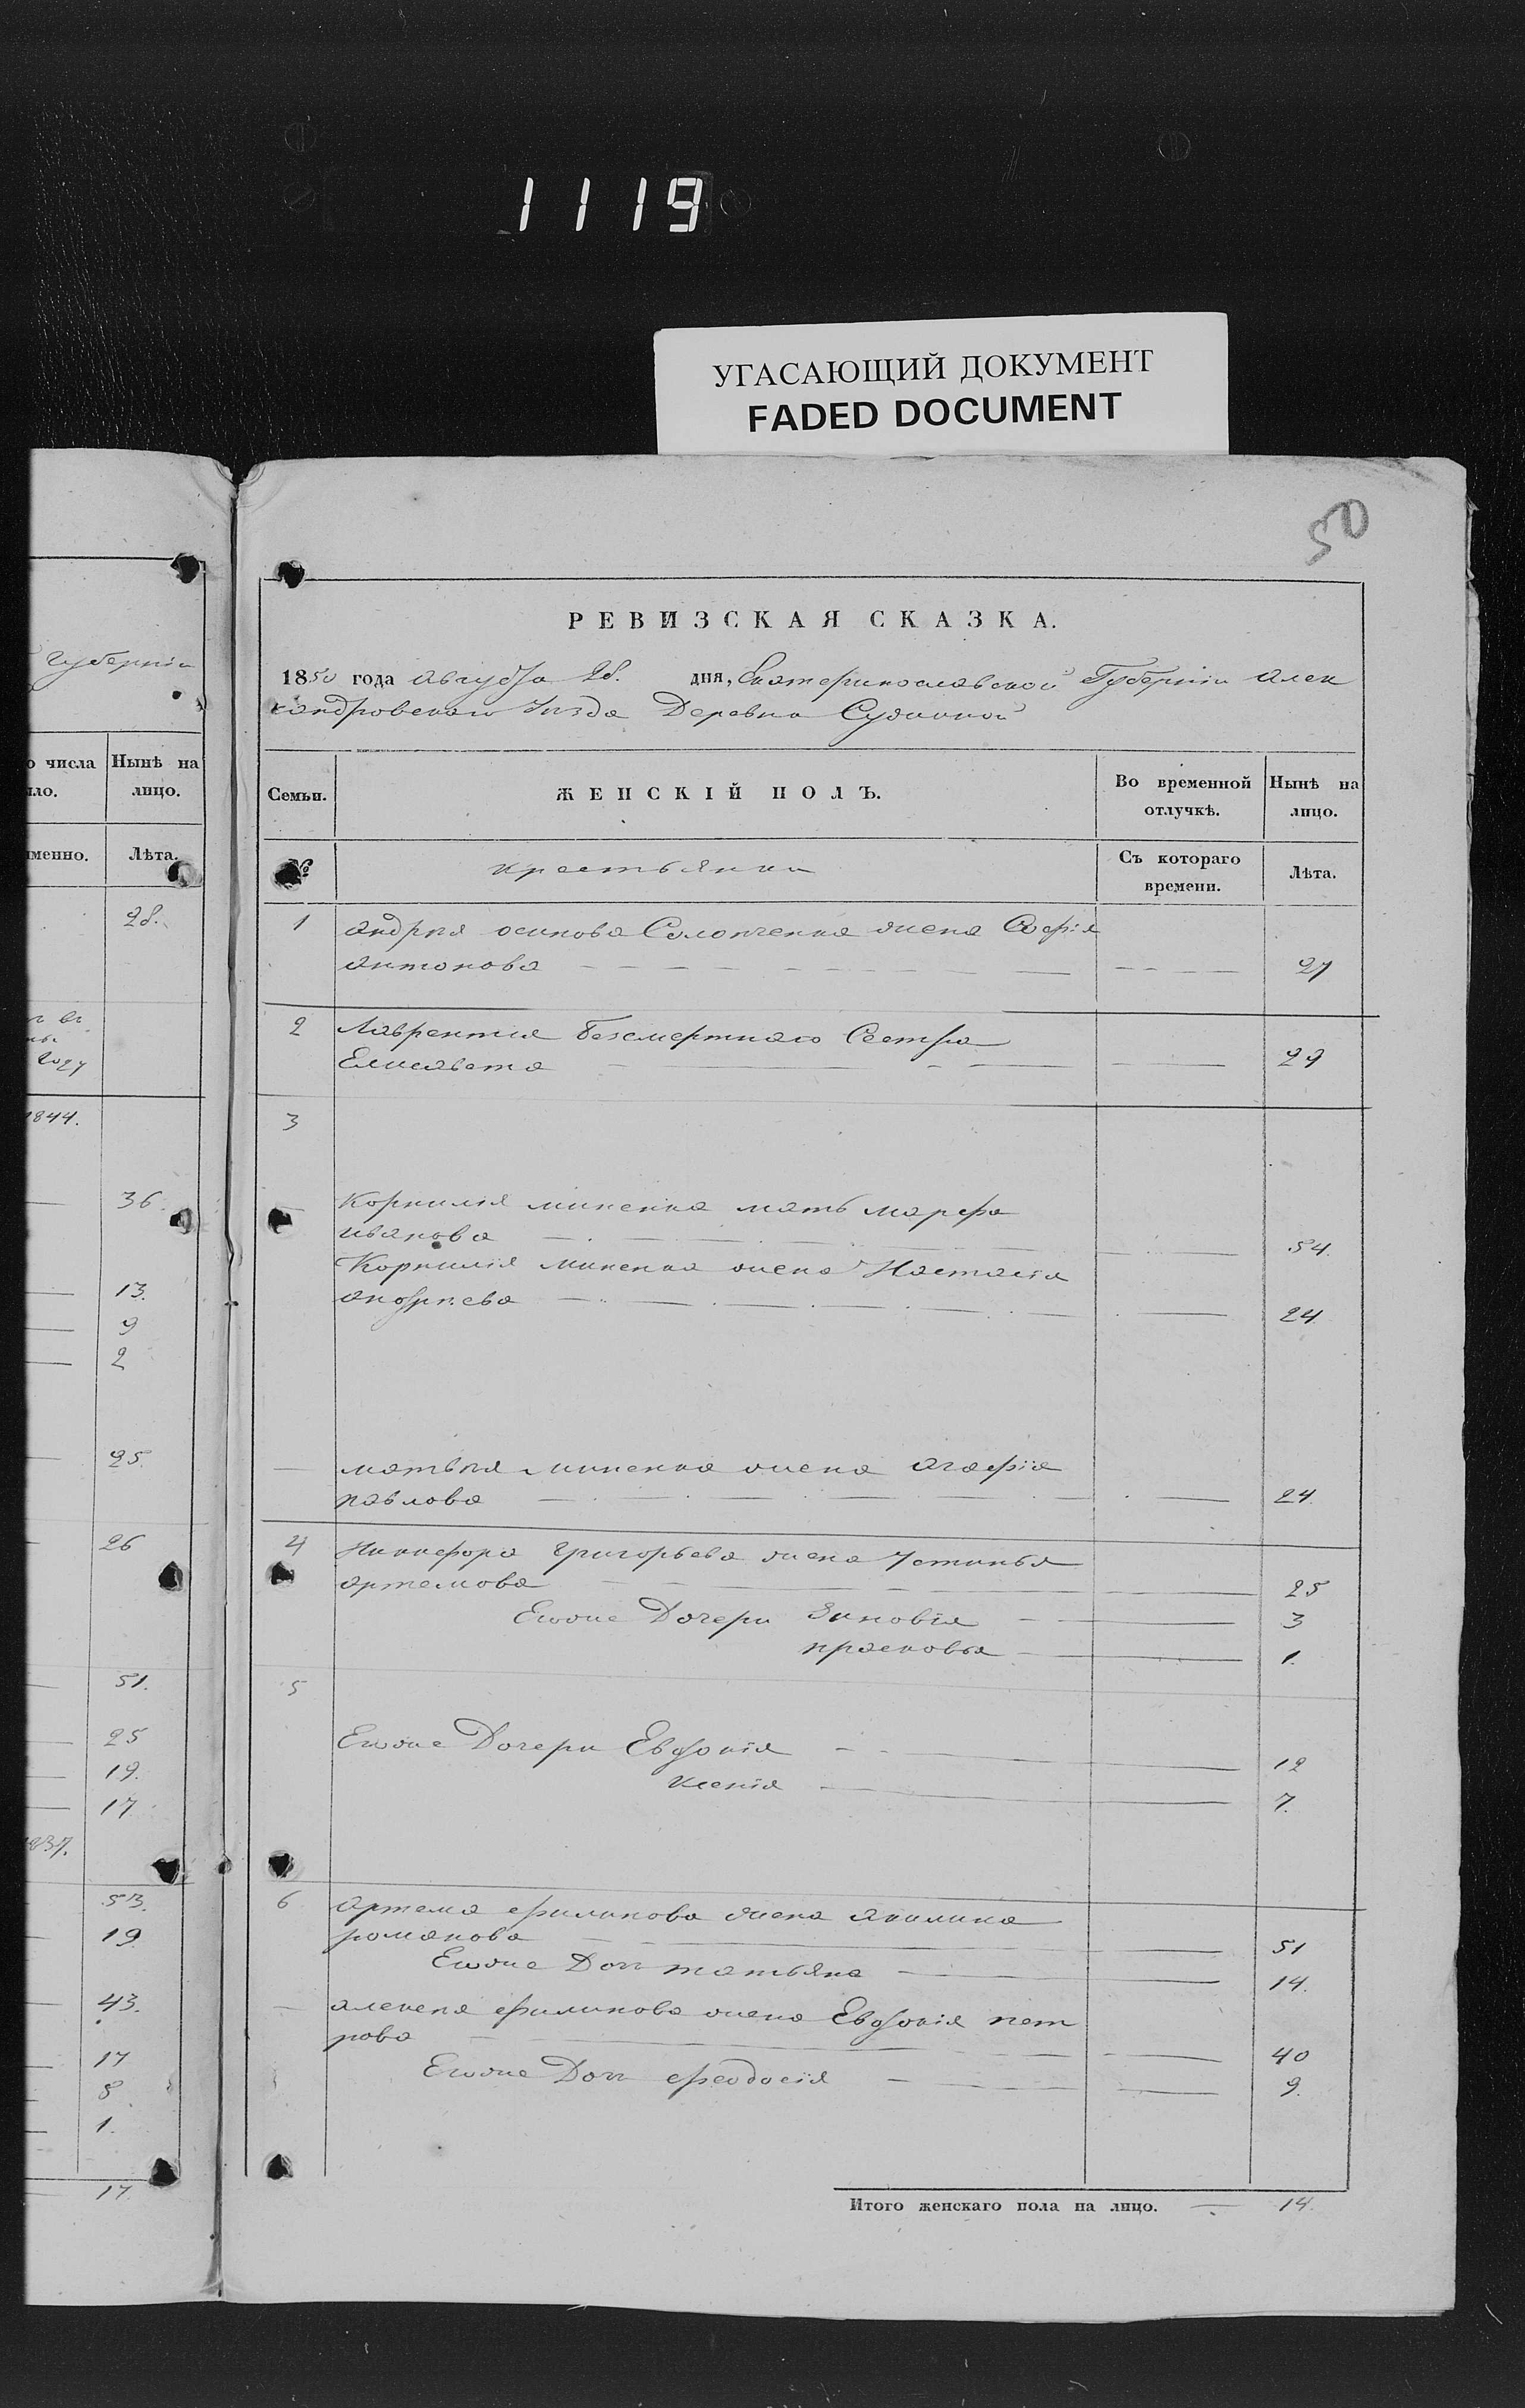 1119
УГАСАЮЩИЙ ДОКУМЕНТ
FADED DOCUMENT
50
губернiи
о числа
ло.
Нынѣ на
лицо.
менно.
Лѣта.
28.
году
1844.
36.
13.
9
2
25.
26
51.
25
19.
17
1837.
53.
19
43.
17
8
1.
17
РЕВИЗСКАЯ СКАЗКА.
1850 года августа 28. дня, Екатеринославской Губернiи Алек
сандровскаго уѣзда Деревни
Семьи.
ЖЕНСКIЙ ПОЛЪ.
Во временной
отлучкѣ.
Нынѣ на
лицо.
№
крестьянки
Съ котораго
времени.
Лѣта.
1 андрѣя осипова жена Софiя
антонова 27
2 Лаврентiя безсмертнаго Сестра
Елисавета 29
3
Корнилiя миненка мать марфа
иванова 54.
Корнилiя миненка жена Настасiя
андрѣева 24.
матвѣя миненка жена агафiя
павлова 24
4 Никифора григорьева жена устинья
артемова 25
Егоже Дочери Зиновiя 3
прасковья 1.
5
Егоже Дочери Евдокiя 12
ксенiя 7.
6 артема филипова жена акилина
романова 51
Егоже Доч татьяна 14.
алексея филипова жена Евдокiя пет
рова 40
Егоже Доч феодосiя 9.
Итого женскаго пола на лицо. 14.